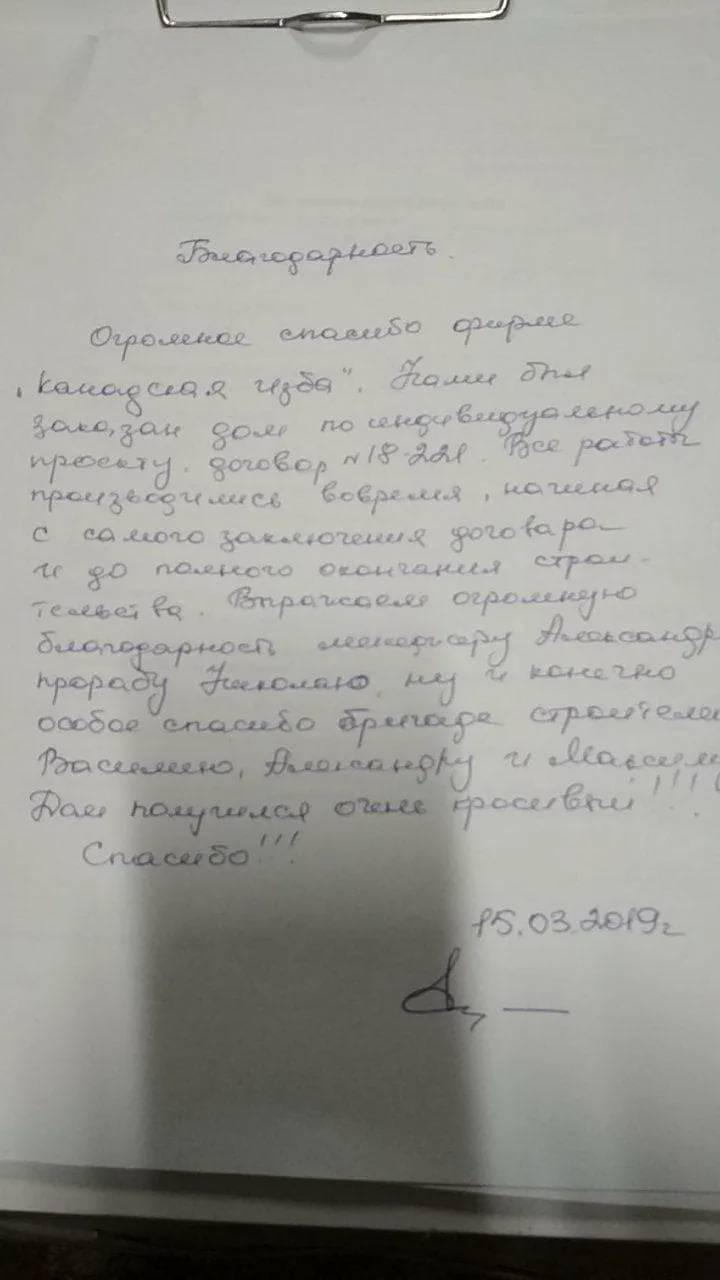 Благодарность.
Огромное спасибо фирме
„Канадская изба". Нами был
заказан дом по индивидуальному
проекту. договор №18-221. Все работы
производились вовремя, начиная
с самого заключения договара
и до полного окончания строи-
тельства. Выражаем огромную
благодарность менеджеру Александр
прорабу Николаю, ну и конечно
особое спасибо бригаде строителе
Василию, Александру и Максим
Дом получился очень красивый!!!
Спасибо!!!
15.03.2019г